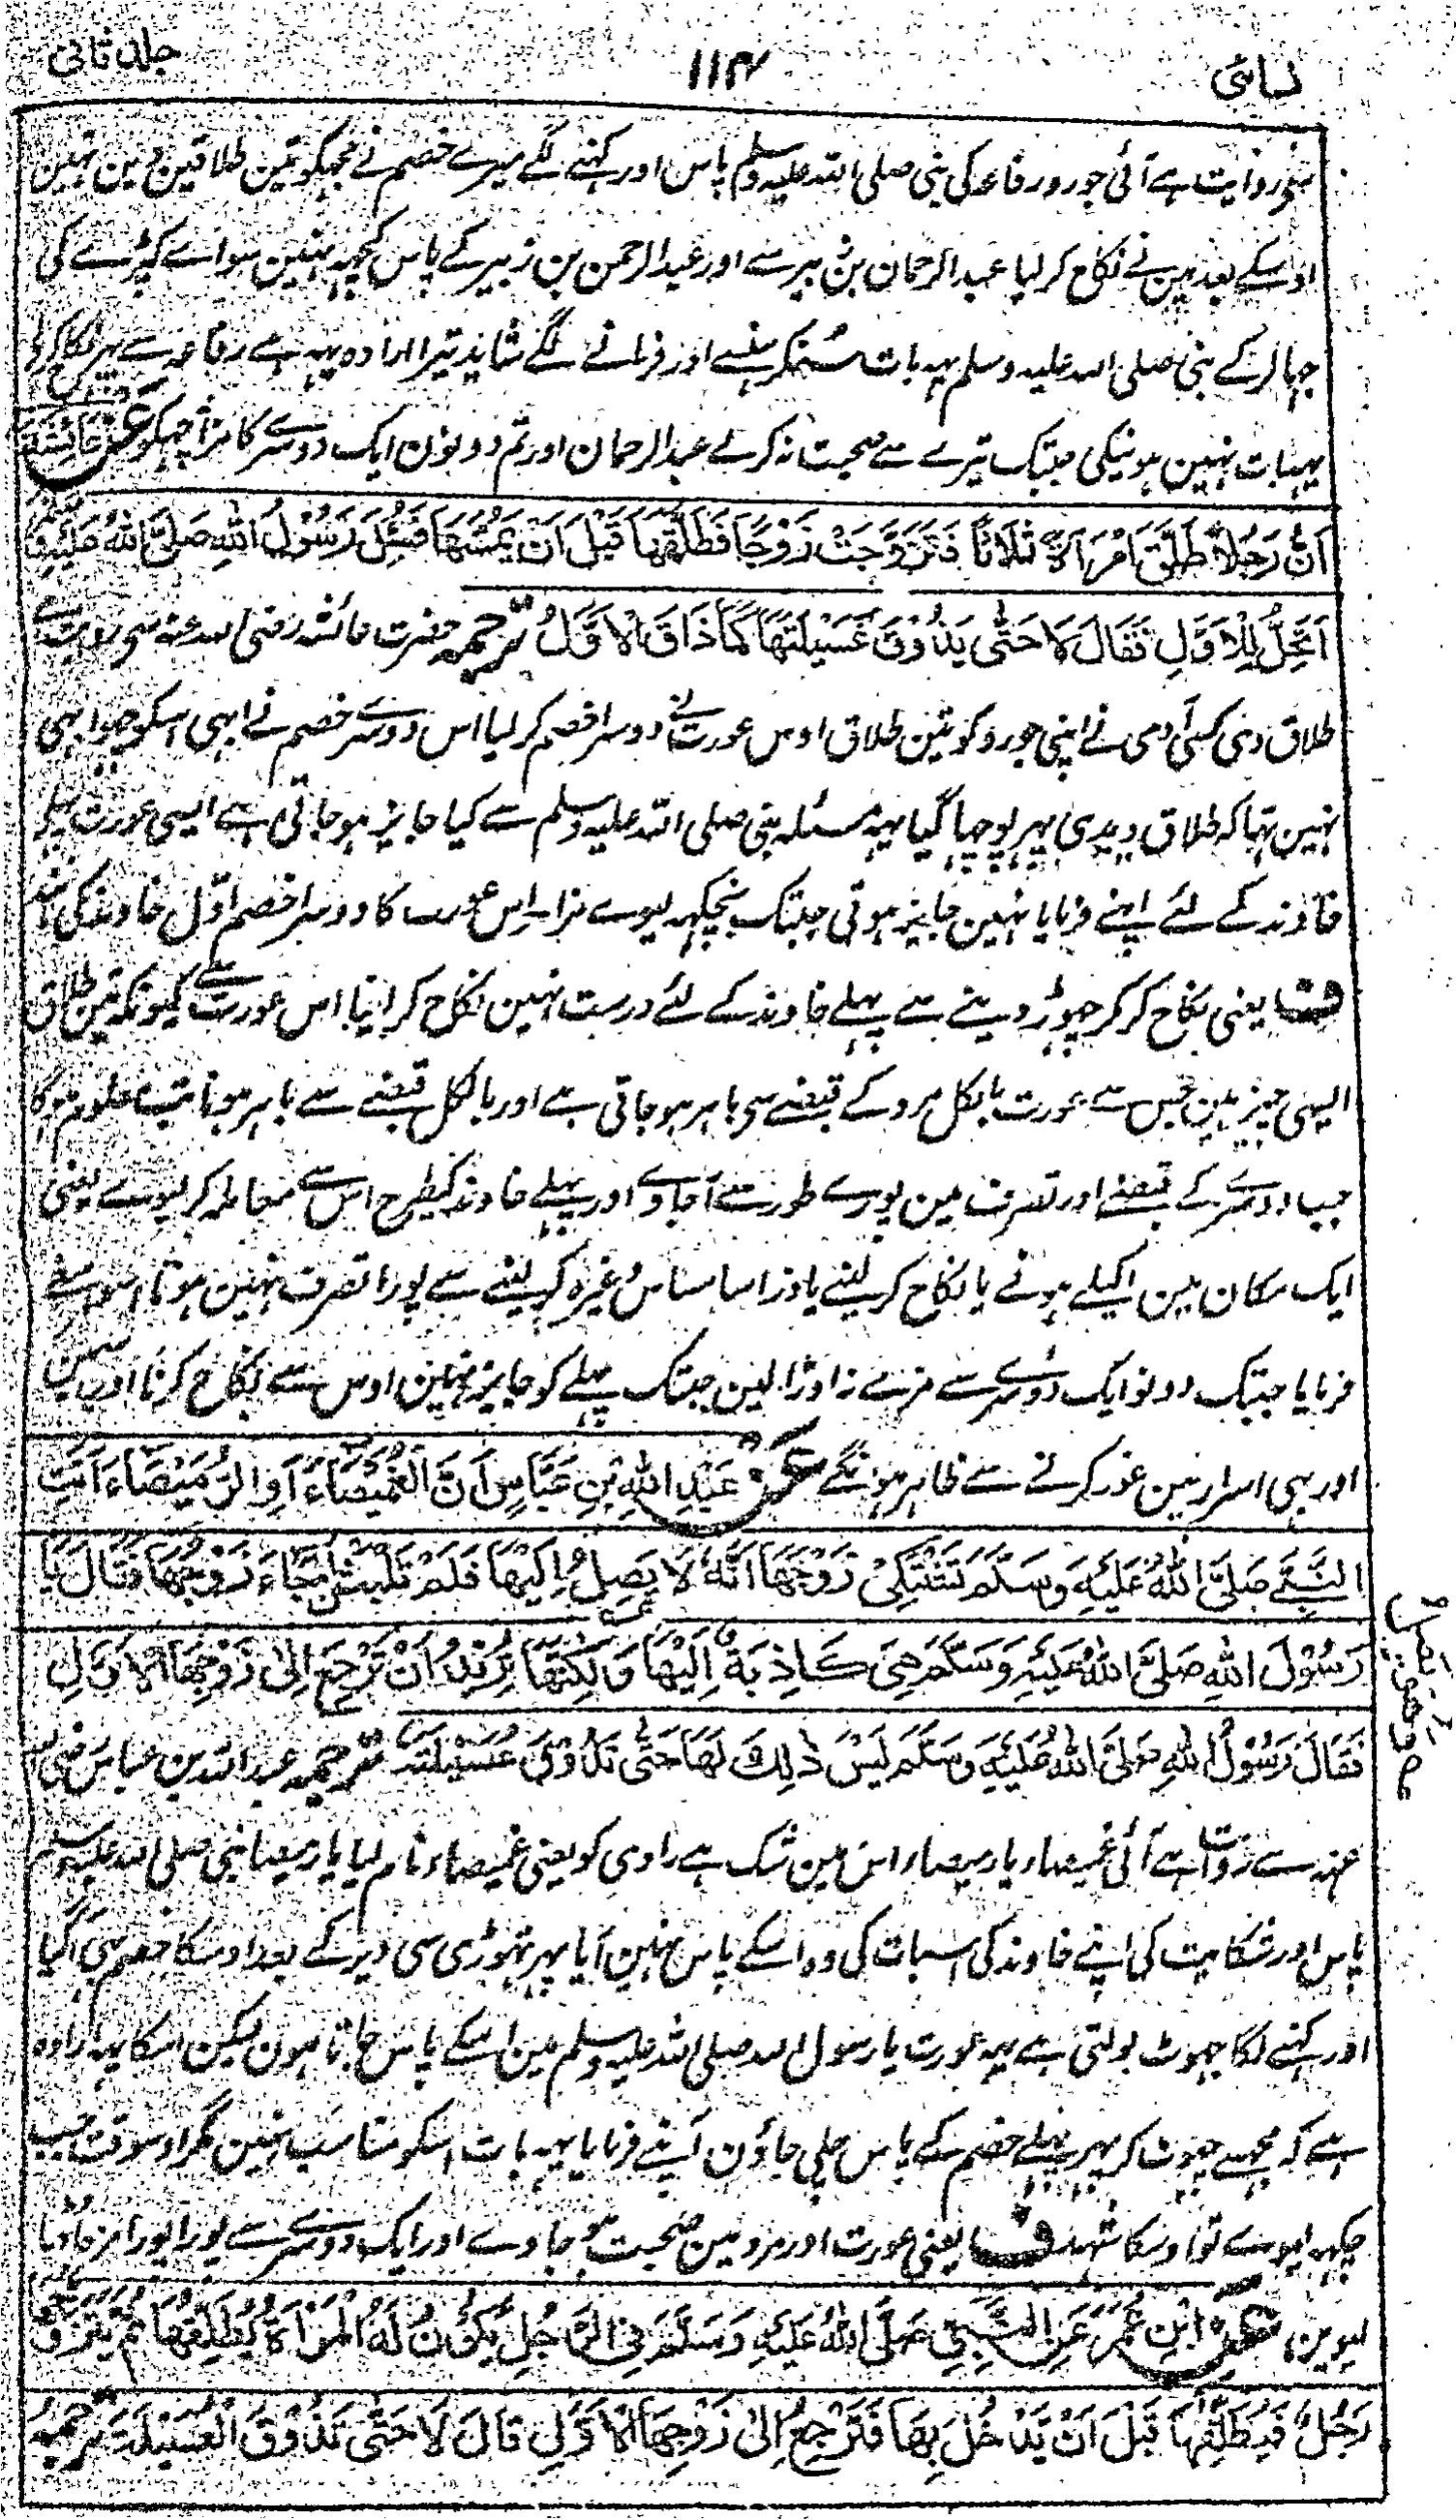 نسائی ۱۱۴ جلد ثانی
روایت ہے آئی جورو رفاعہ کی نبی صلی اللہ علیہ وسلم پاس اور کہنے لگے میرے خصم نے مجہکو تین طلاقین دین تہین
اوسکے بعد مین نے نکاح کر لیا عبدالرحمان بن زبیر سے اور عبدالرحمن بن زبیر کے پاس کچہہ نہین سواے کپڑے کی
جہالر کے نبی صلی اللہ علیہ وسلم یہہ بات سنکر ہنسے اور فرمانے لگے شاید تیرا ارادہ یہہ ہے رفاعہ سے پہر نکاح کرلو
یہہ بات نہین ہونیکی جبتک تیرے سے صحبت نہ کرلے عبدالرحمان اور تم دونون ایک دوسرے کا مزا چہکو عَنْ عَائِشَةَ
اَنَّ رَجُلًا طَلَّقَ امْرَاَتَهٗ ثَلَاثًا فَتَزَوَّجَتْ زَوْجًا فَطَلَّقَهَا قَبْلَ اَنْ یَمَسَّهَا فَسُئِلَ رَسُوْلُ اللهِ صَلَّی اللهُ عَلَیْهِ
اَتَحِلُّ لِلْاَوَّلِ فَقَالَ لَا حَتّٰی یَذُوْقَ عُسَیْلَتَهَا کَمَا ذَاقَ الْاَوَّلُ ترجمہ حضرت عائشہ رضی اللہ عنہ سی روایت ہے
طلاق دی کسی آدمی نے اپنی جورو کو تین طلاق اوس عورت نے دوسرا خصم کر لیا اس دوسرے خصم نے ابہی اسکو چہوا بہی
نہین تہا کہ طلاق دیدی پہر پوچہا گیا یہہ مسئلہ نبی صلی اللہ علیہ وسلم سے کیا جایز ہو جاتی ہے ایسی عورت پہلے
خاوند کے لئے اپنے فرمایا نہین جایز ہوتی جبتک نچکہہ لیوے مزا اس عورت کا دوسرا خصم اوّل خاوند کی مانند
ف یعنی نکاح کر کر چہوڑ دینے سے پہلے خاوند کے لئے درست نہین نکاح کر لینا اس عورت سے کیونکہ تین طلاق
ایسی چیز ہین جس سے عورت بالکل مرد کے قبضے سی باہر ہو جاتی ہے اور بالکل قبضے سے باہر ہونا تب معلوم ہوگا
جب دوسرے کے قبضے اور تصرف مین پورے طور سے آجاوے اور پہلے خاوند کیطرح اس سے معاملہ کر لیوے یعنی
ایک مکان مین اکیلے ہونے یا نکاح کر لینے یا ذراسا مساس وغیرہ کر لینے سے پورا تصرف نہین ہوتا اسواسطے
فرمایا جبتک دونو ایک دوسرے سے مزے نہ اوڑا لین جبتک پہلے کو جایز نہین اوس سے نکاح کرنا اور اسمین
اور بہی اسرار ہین غور کرنے سے ظاہر ہونگے عَنْ عَبْدِ اللهِ بْنِ عَبَّاسٍ اَنَّ الْغُمَیْصَاءَ اَوِ الرُّمَیْصَاءَ اَتَتِ
النَّبِیَّ صَلَّی اللهُ عَلَیْهِ وَسَلَّمَ تَشْتَکِیْ زَوْجَهَا اَنَّهٗ لَا یَصِلُ اِلَیْهَا فَلَمْ تَلْبَثْ اَنْ جَاءَ زَوْجُهَا فَقَالَ یَا
رَسُوْلَ اللهِ صَلَّی اللهُ عَلَیْهِ وَسَلَّمَ هِیَ کَاذِبَةٌ اِلَیْهَا وَلٰکِنَّهَا تُرِیْدُ اَنْ تَرْجِعَ اِلٰی زَوْجِهَا الْاَوَّلِ
فَقَالَ رَسُوْلُ اللهِ صَلَّی اللهُ عَلَیْهِ وَسَلَّمَ لَیْسَ ذٰلِكَ لَهَا حَتّٰی تَذُوْقَ عُسَیْلَتَهٗ ترجمہ عبداللہ بن عباس رضی اللہ
عنہ سے روایت ہے آئی غمیصاء یا رمیصاء اس مین شک ہے راوی کو یعنی غمیصاء نام لیا یا رمیصا نبی صلی اللہ علیہ وسلم
پاس اور شکایت کی اپنے خاوند کی اسبات کی وہ اسکے پاس نہین آیا پہر تہوڑی سی دیر کے بعد اوسکا خصم بہی آگیا
اور کہنے لگا جہوٹ بولتی ہے یہہ عورت یا رسول اللہ صلی اللہ علیہ وسلم مین اسکے پاس جاتا ہون لیکن اسکا یہہ ارادہ
ہے کہ مجہسے چہوٹ کر پہر پہلے خصم کے پاس چلی جاؤن آپنے فرمایا یہہ بات اسکو مناسب نہین مگر اوسوقت جب
چکہہ لیوے تو اوسکا شہد ف یعنی عورت اور مرد مین صحبت ہو جاوے اور ایک دوسرے سے پورا پورا مزا اوٹہا
لیوین عَنْ ابْنِ عُمَرَ عَنِ النَّبِیِّ صَلَّی اللهُ عَلَیْهِ وَسَلَّمَ فِی الرَّجُلِ یَکُوْنُ لَهُ الْمَرْاَةُ یُطَلِّقُهَا ثُمَّ یَتَزَوَّجُهَا
رَجُلٌ فَیُطَلِّقُهَا قَبْلَ اَنْ یَّدْخُلَ بِهَا فَتَرْجِعُ اِلٰی زَوْجِهَا الْاَوَّلِ قَالَ لَا حَتّٰی تَذُوْقَ الْعُسَیْلَةَ ترجمہ